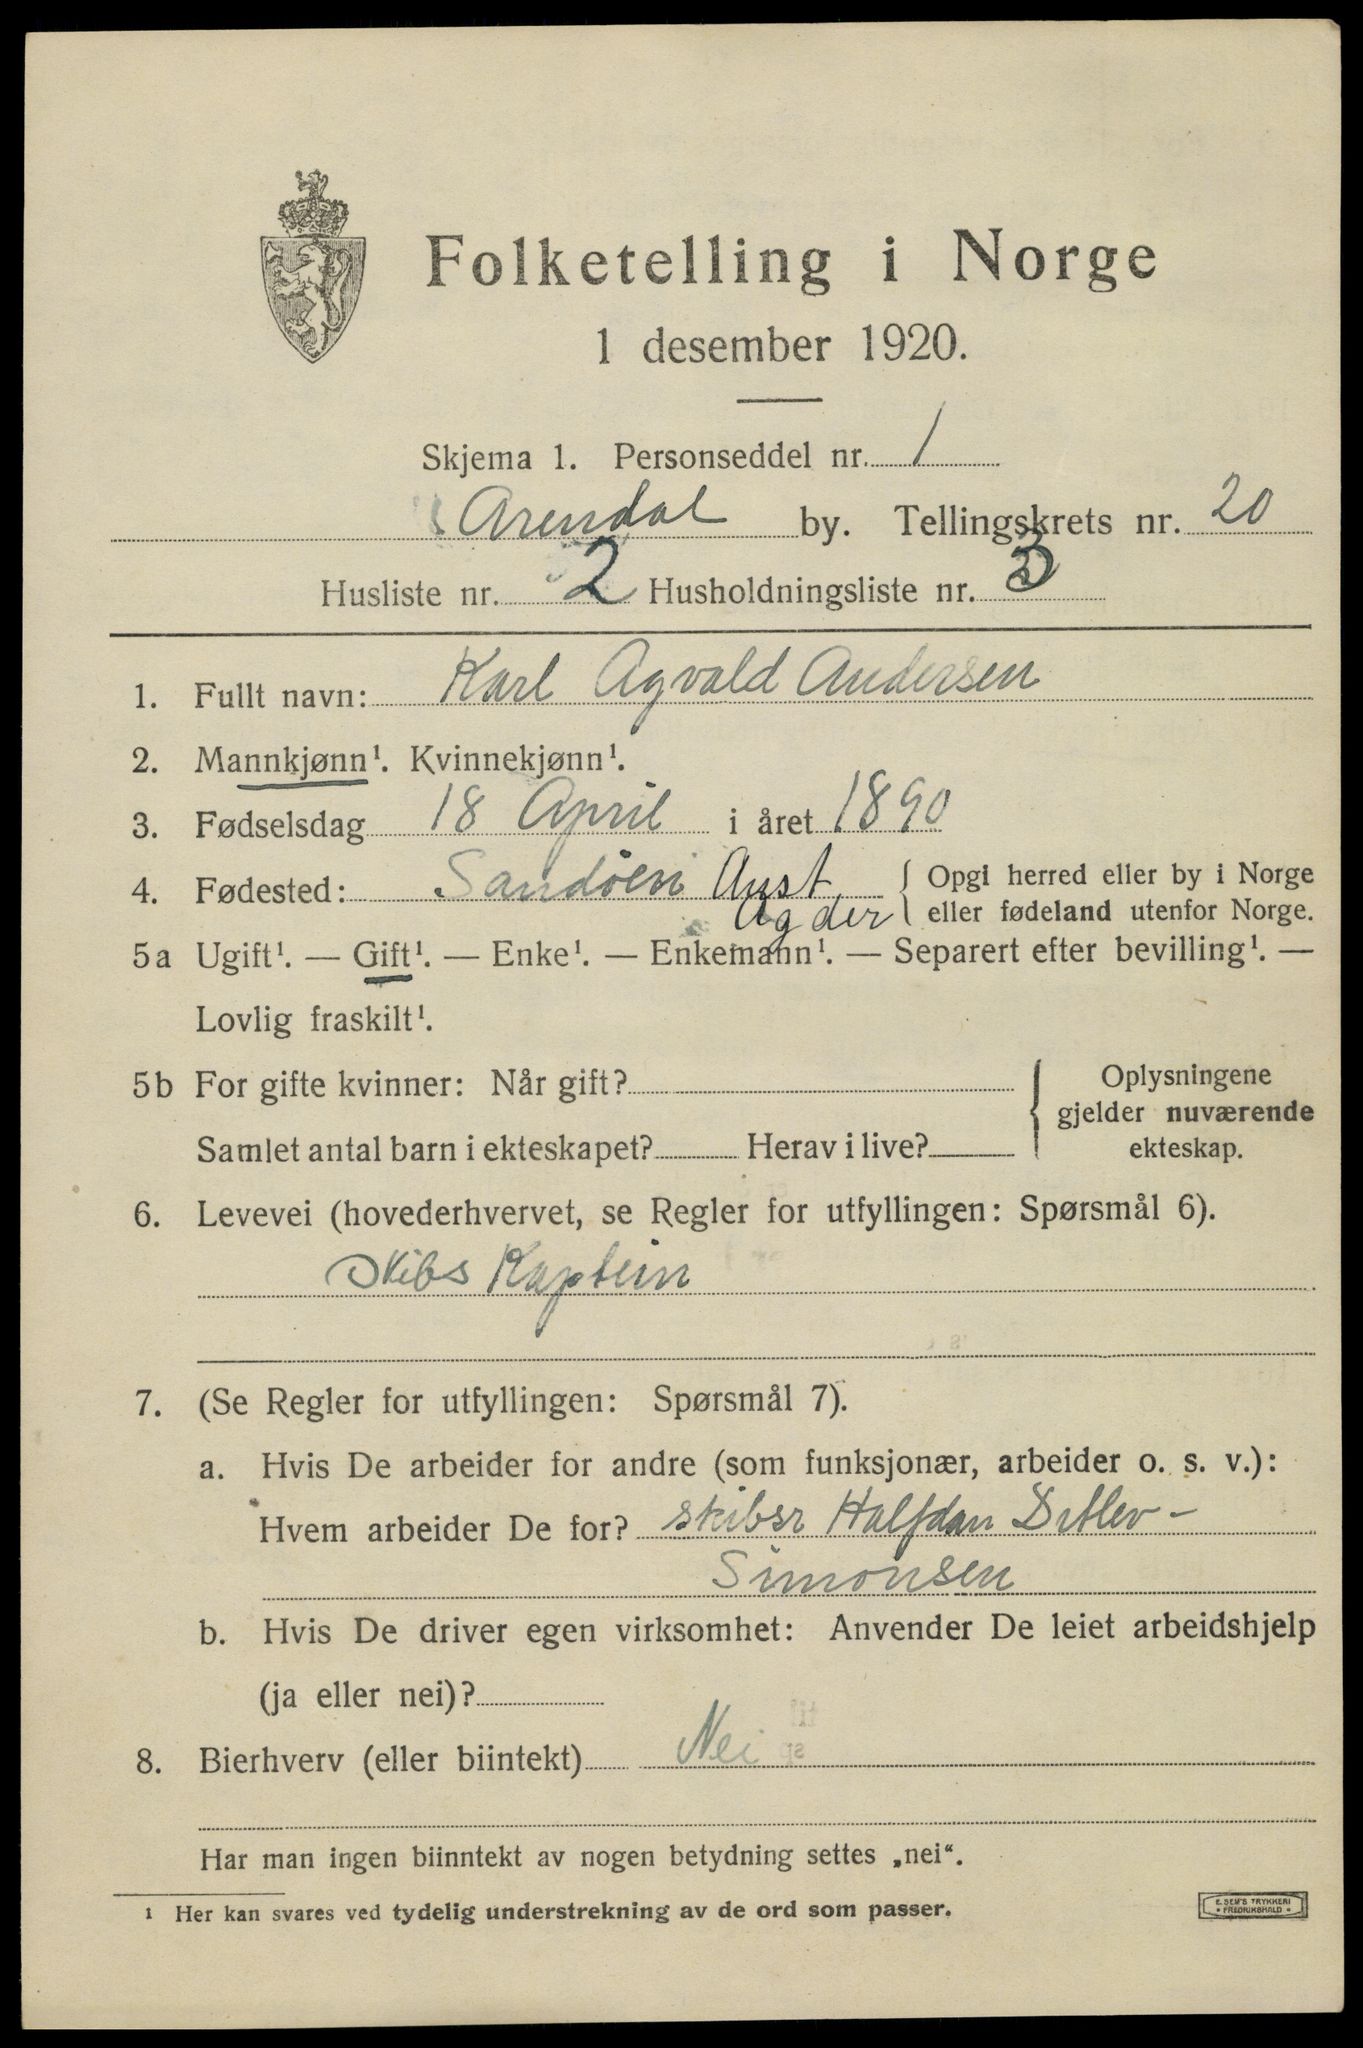 Folketelling i Norge
1 desember 1920.
Skjema 1. Personseddel nr. 1
Arendal by. Tellingskrets nr. 20
Husliste nr. 2 Husholdningsliste nr. 3
1. Fullt navn: Karl Agvald Andersen
2. Mannkjønn¹. Kvinnekjønn¹.
3. Fødselsdag 18 April i året 1890
4. Fødested: Sandöen Aust Agder { Opgi herred eller by i Norge
eller fødeland utenfor Norge.
5a Ugift¹. — Gift¹. — Enke¹. — Enkemann¹. — Separert efter bevilling¹. —
Lovlig fraskilt¹.
5b For gifte kvinner: Når gift? { Oplysningene
gjelder nuværende
Samlet antal barn i ekteskapet? Herav i live? ekteskap.
6. Levevei (hovederhvervet, se Regler for utfyllingen: Spørsmål 6).
Skibs Kaptein
7. (Se Regler for utfyllingen: Spørsmål 7).
a. Hvis De arbeider for andre (som funksjonær, arbeider o. s. v.):
Hvem arbeider De for? skibsr Halfdan Ditlev-
Simonsen
b. Hvis De driver egen virksomhet: Anvender De leiet arbeidshjelp
(ja eller nei)?
8. Bierhverv (eller biintekt) Nei
Har man ingen biinntekt av nogen betydning settes „nei“.
¹ Her kan svares ved tydelig understrekning av de ord som passer.
E. SEM'S TRYKKERI
* FREDRIKSHALD *